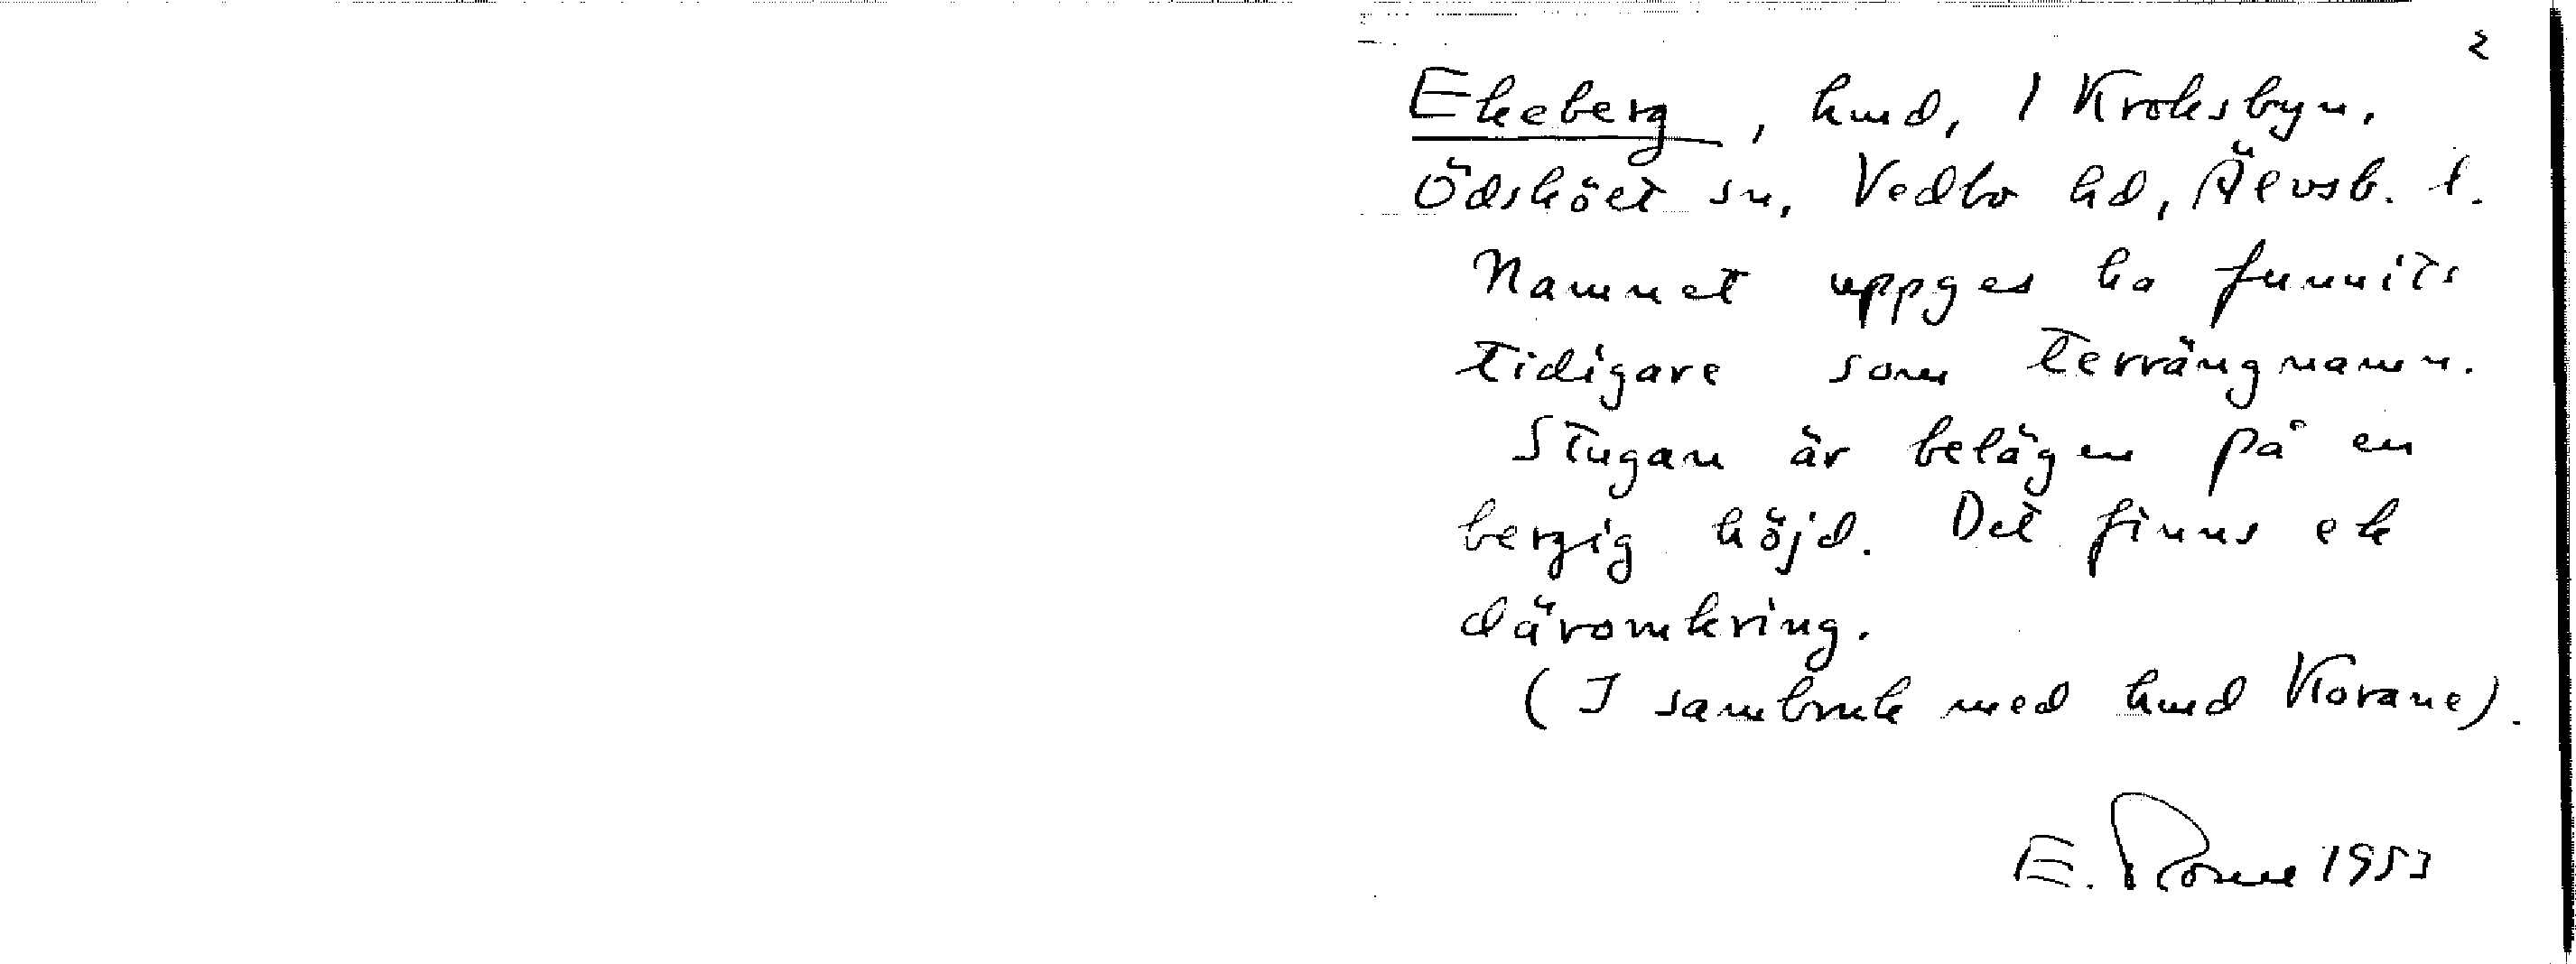 2
Ekeberg, hmd, 1 Kroksbyn,
Ödsköet sn, Vedbo hd, Älvsb. l.
Namnet uppges ha funnits
tidigare som terrängnamn.
Stugan är belägen på en
bergig höjd. Det finns ek
däromkring.
(I sambruk med hmd Korane).
E. 1953